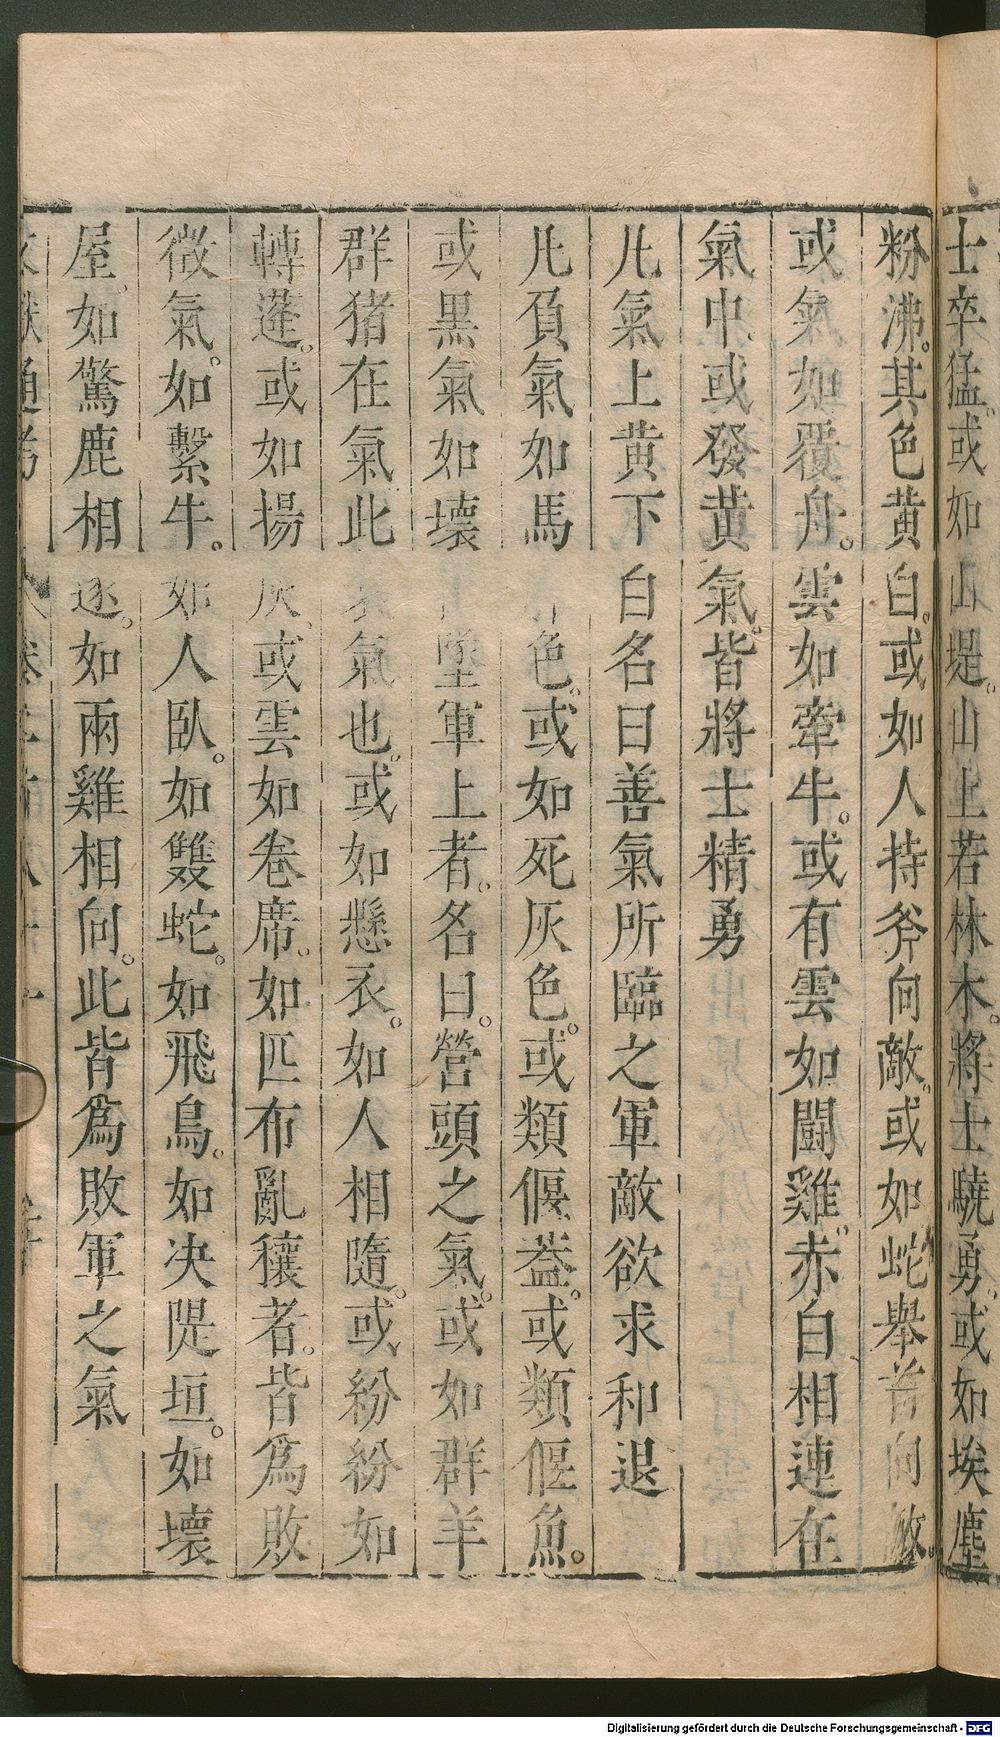 士卒猛。或如山堤。山上若林木。將士驍勇。或如埃塵
粉沸。其色黃白。或如人持斧向敵。或如蛇舉首向敵。
或氣如覆舟。雲如牽牛。或有雲如鬪雞。赤白相連在
氣中。或發黃氣。皆將士精勇
凡氣上黃下白名曰善氣所臨之軍敵欲求和退
凡負氣如馬肝色。或如死灰色。或類偃蓋。或類偃魚。
或黑氣如壞山墮軍上者。名曰。營頭之氣。或如群羊
群猪在氣此衰氣也。或如懸衣。如人相隨。或紛紛如
轉蓬。或如揚灰。或雲如卷席。如匹布亂穰者。皆爲敗
微氣。如繫牛。如人臥。如雙蛇。如飛鳥。如决隄垣。如壞
屋。如驚鹿相逐。如兩雞相向。此皆爲敗軍之氣
文獻通考 卷二百八十一
Digitalisierung gefördert durch die Deutsche Forschungsgemeinschaft - DFG